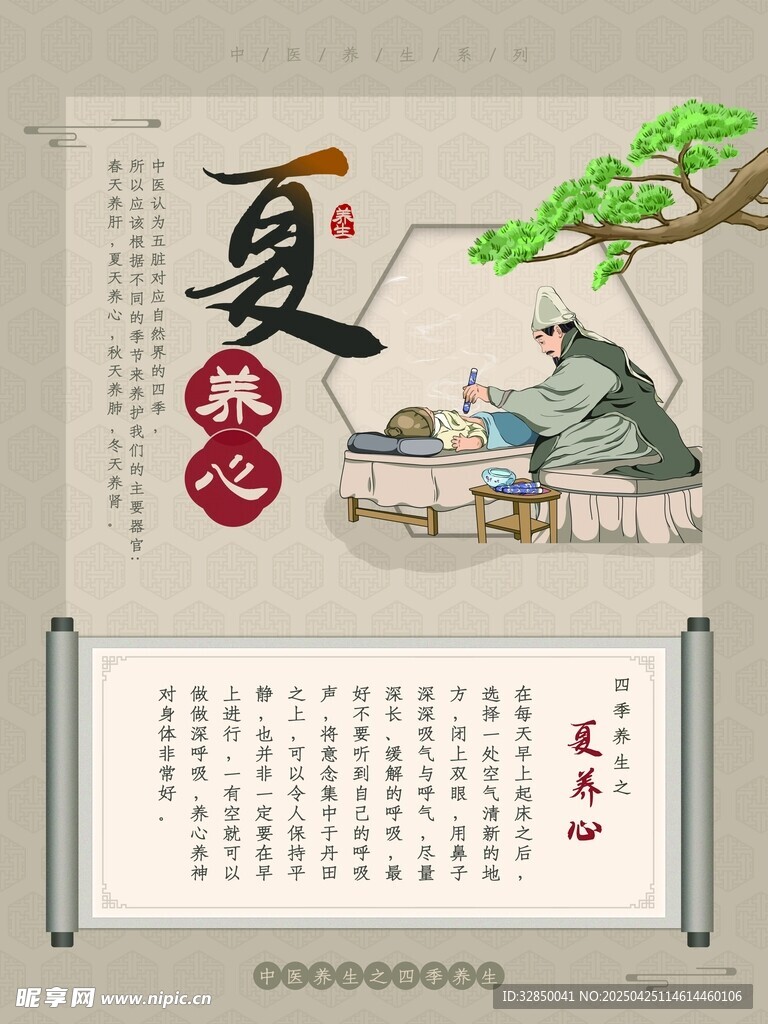 中/医/养/生/系/列
夏
养生
养
心
中医认为五脏对应自然界的四季，
所以应该根据不同的季节来养护我们的主要器官：
春天养肝，夏天养心，秋天养肺，冬天养肾。
四季养生之
夏养心
在每天早上起床之后，
选择一处空气清新的地
方，闭上双眼，用鼻子
深深吸气与呼气，尽量
深长、缓解的呼吸，最
好不要听到自己的呼吸
声，将意念集中于丹田
之上，可以令人保持平
静，也并非一定要在早
上进行，一有空就可以
做做深呼吸，养心养神
对身体非常好。
中医养生之四季养生
昵享网 www.nipic.cn
ID:32850041 NO:20250425114614460106